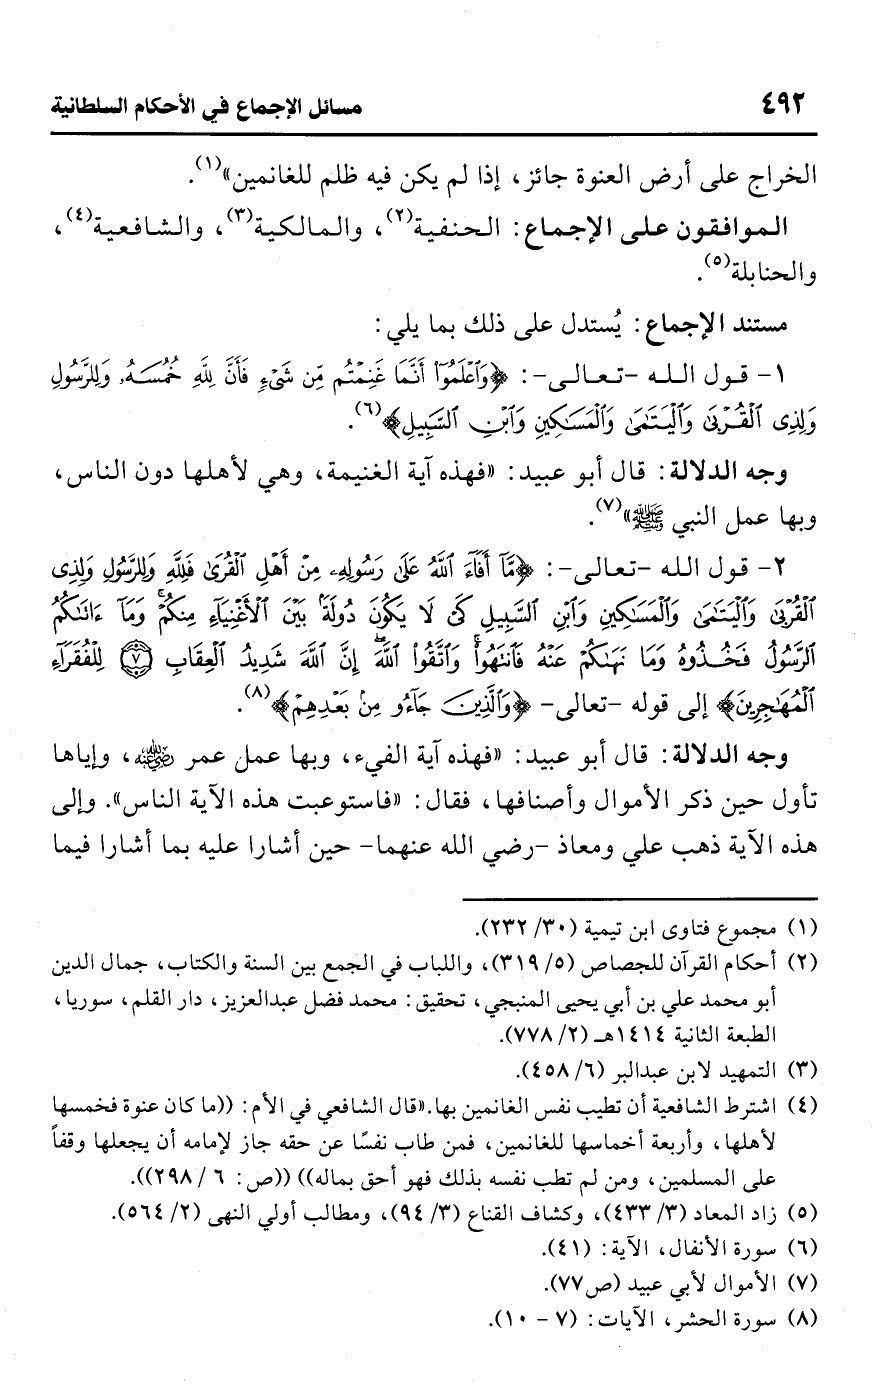 ٤٩٢ مسائل الإجماع في الأحكام السلطانية
الخراج على أرض العنوة جائز، إذا لم يكن فيه ظلم للغانمين»(١).
الموافقون على الإجماع: الحنفية(٢)، والمالكية(٣)، والشافعية(٤)،
والحنابلة(٥).
مستند الإجماع: يُستدل على ذلك بما يلي:
١- قول الله -تعالى-: ﴿وَٱعْلَمُوٓا۟ أَنَّمَا غَنِمْتُم مِّن شَىْءٍ فَأَنَّ لِلَّهِ خُمُسَهُۥ وَلِلرَّسُولِ
وَلِذِى ٱلْقُرْبَىٰ وَٱلْيَتَـٰمَىٰ وَٱلْمَسَـٰكِينِ وَٱبْنِ ٱلسَّبِيلِ﴾(٦).
وجه الدلالة: قال أبو عبيد: «فهذه آية الغنيمة، وهي لأهلها دون الناس،
وبها عمل النبي ﷺ»(٧).
٢- قول الله -تعالى-: ﴿مَّآ أَفَآءَ ٱللَّهُ عَلَىٰ رَسُولِهِۦ مِنْ أَهْلِ ٱلْقُرَىٰ فَلِلَّهِ وَلِلرَّسُولِ وَلِذِى
ٱلْقُرْبَىٰ وَٱلْيَتَـٰمَىٰ وَٱلْمَسَـٰكِينِ وَٱبْنِ ٱلسَّبِيلِ كَىْ لَا يَكُونَ دُولَةًۢ بَيْنَ ٱلْأَغْنِيَآءِ مِنكُمْ ۚ وَمَآ ءَاتَىٰكُمُ
ٱلرَّسُولُ فَخُذُوهُ وَمَا نَهَىٰكُمْ عَنْهُ فَٱنتَهُوا۟ ۚ وَٱتَّقُوا۟ ٱللَّهَ ۖ إِنَّ ٱللَّهَ شَدِيدُ ٱلْعِقَابِ ۝٧ لِلْفُقَرَآءِ
ٱلْمُهَـٰجِرِينَ﴾ إلى قوله -تعالى- ﴿وَٱلَّذِينَ جَآءُو مِنۢ بَعْدِهِمْ﴾(٨).
وجه الدلالة: قال أبو عبيد: «فهذه آية الفيء، وبها عمل عمر رضي الله عنه، وإياها
تأول حين ذكر الأموال وأصنافها، فقال: «فاستوعبت هذه الآية الناس». وإلى
هذه الآية ذهب علي ومعاذ -رضي الله عنهما- حين أشارا عليه بما أشارا فيما
(١) مجموع فتاوى ابن تيمية (٣٠/ ٢٣٢).
(٢) أحكام القرآن للجصاص (٥/ ٣١٩)، واللباب في الجمع بين السنة والكتاب، جمال الدين
أبو محمد علي بن أبي يحيى المنبجي، تحقيق: محمد فضل عبدالعزيز، دار القلم، سوريا،
الطبعة الثانية ١٤١٤هـ (٢/ ٧٧٨).
(٣) التمهيد لابن عبدالبر (٦/ ٤٥٨).
(٤) اشترط الشافعية أن تطيب نفس الغانمين بها.«قال الشافعي في الأم: ((ما كان عنوة فخمسها
لأهلها، وأربعة أخماسها للغانمين، فمن طاب نفسًا عن حقه جاز لإمامه أن يجعلها وقفاً
على المسلمين، ومن لم تطب نفسه بذلك فهو أحق بماله)) ((ص: ٦ / ٢٩٨)).
(٥) زاد المعاد (٣/ ٤٣٣)، وكشاف القناع (٣/ ٩٤)، ومطالب أولي النهى (٢/ ٥٦٤).
(٦) سورة الأنفال، الآية: (٤١).
(٧) الأموال لأبي عبيد (ص٧٧).
(٨) سورة الحشر، الآيات: (٧ - ١٠).